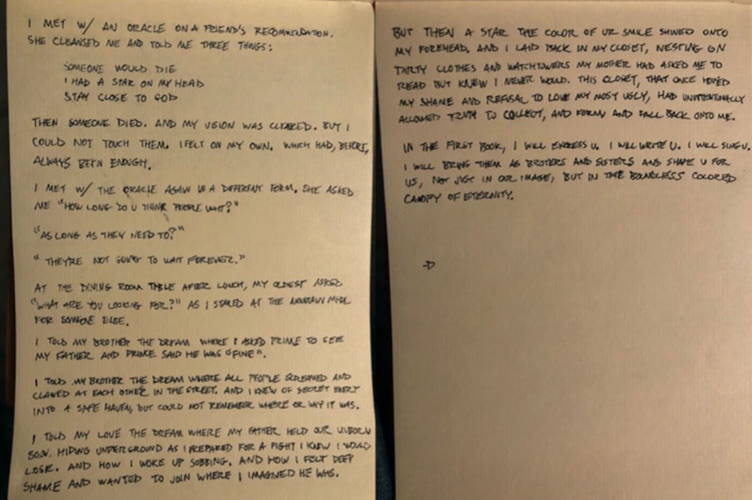 I MET W/ AN ORACLE ON A FRIEND'S RECOMMENDATION.
SHE CLEANSED ME AND TOLD ME THREE THINGS:
SOMEONE WOULD DIE
I HAD A STAR ON MY HEAD
STAY CLOSE TO GOD
THEN SOMEONE DIED. AND MY VISION WAS CLEARED. BUT I
COULD NOT TOUCH THEM. I FELT ON MY OWN. WHICH HAD, BEFORE,
ALWAYS BEEN ENOUGH.
I MET W/ THE ORACLE AGAIN IN A DIFFERENT FORM. SHE ASKED
ME "HOW LONG DO U THINK PEOPLE WAIT?"
"AS LONG AS THEY NEED TO?"
"THEYRE NOT GOING TO WAIT FOREVER."
AT THE DINING ROOM TABLE AFTER LUNCH, MY OLDEST ASKED
"WHAT ARE YOU LOOKING FOR?" AS I STARED AT THE MOUNTAIN
FOR SOMEONE ELSE.
I TOLD MY BROTHER THE DREAM WHERE I ASKED PRIME TO SEE
MY FATHER AND PRIME SAID HE WAS "FINE".
I TOLD MY BROTHER THE DREAM WHERE ALL PEOPLE SCREAMED AND
CLAWED AT EACH OTHER IN THE STREET. AND I KNEW OF SECRET ENTRY
INTO A SAFE HAVEN, BUT COULD NOT REMEMBER WHERE OR WHY IT WAS.
I TOLD MY LOVE THE DREAM WHERE MY FATHER HELD OUR UNBORN
SON. HIDING UNDERGROUND AS I PREPARED FOR A FIGHT I KNEW I WOULD
LOSE. AND HOW I WOKE UP SOBBING. AND HOW I FELT DEEP
SHAME AND WANTED TO JOIN WHERE I IMAGINED HE WAS.
BUT THEN A STAR THE COLOR OF UR SMILE SHINED ONTO
MY FOREHEAD. AND I LAID BACK IN MY CLOSET, NESTING ON
DIRTY CLOTHES AND WATCHTOWERS MY MOTHER HAD ASKED ME TO
READ BUT KNEW I NEVER WOULD. THIS CLOSET, THAT ONCE HOUSED
MY SHAME AND REFUSAL TO LOVE MY MOST UGLY, HAD UNINTENTIONALLY
ALLOWED TRUTH TO COLLECT, AND FORM AND FALL BACK ONTO ME.
IN THE FIRST BOOK, I WILL EXPRESS U. I WILL WRITE U. I WILL SING U.
I WILL BRING THEM AS BROTERS AND SISTERS AND SHAPE U FOR
US, NOT JUST IN OUR IMAGE, BUT IN THE BOUNDLESS COLORED
CANOPY OF ETERNITY.
-D